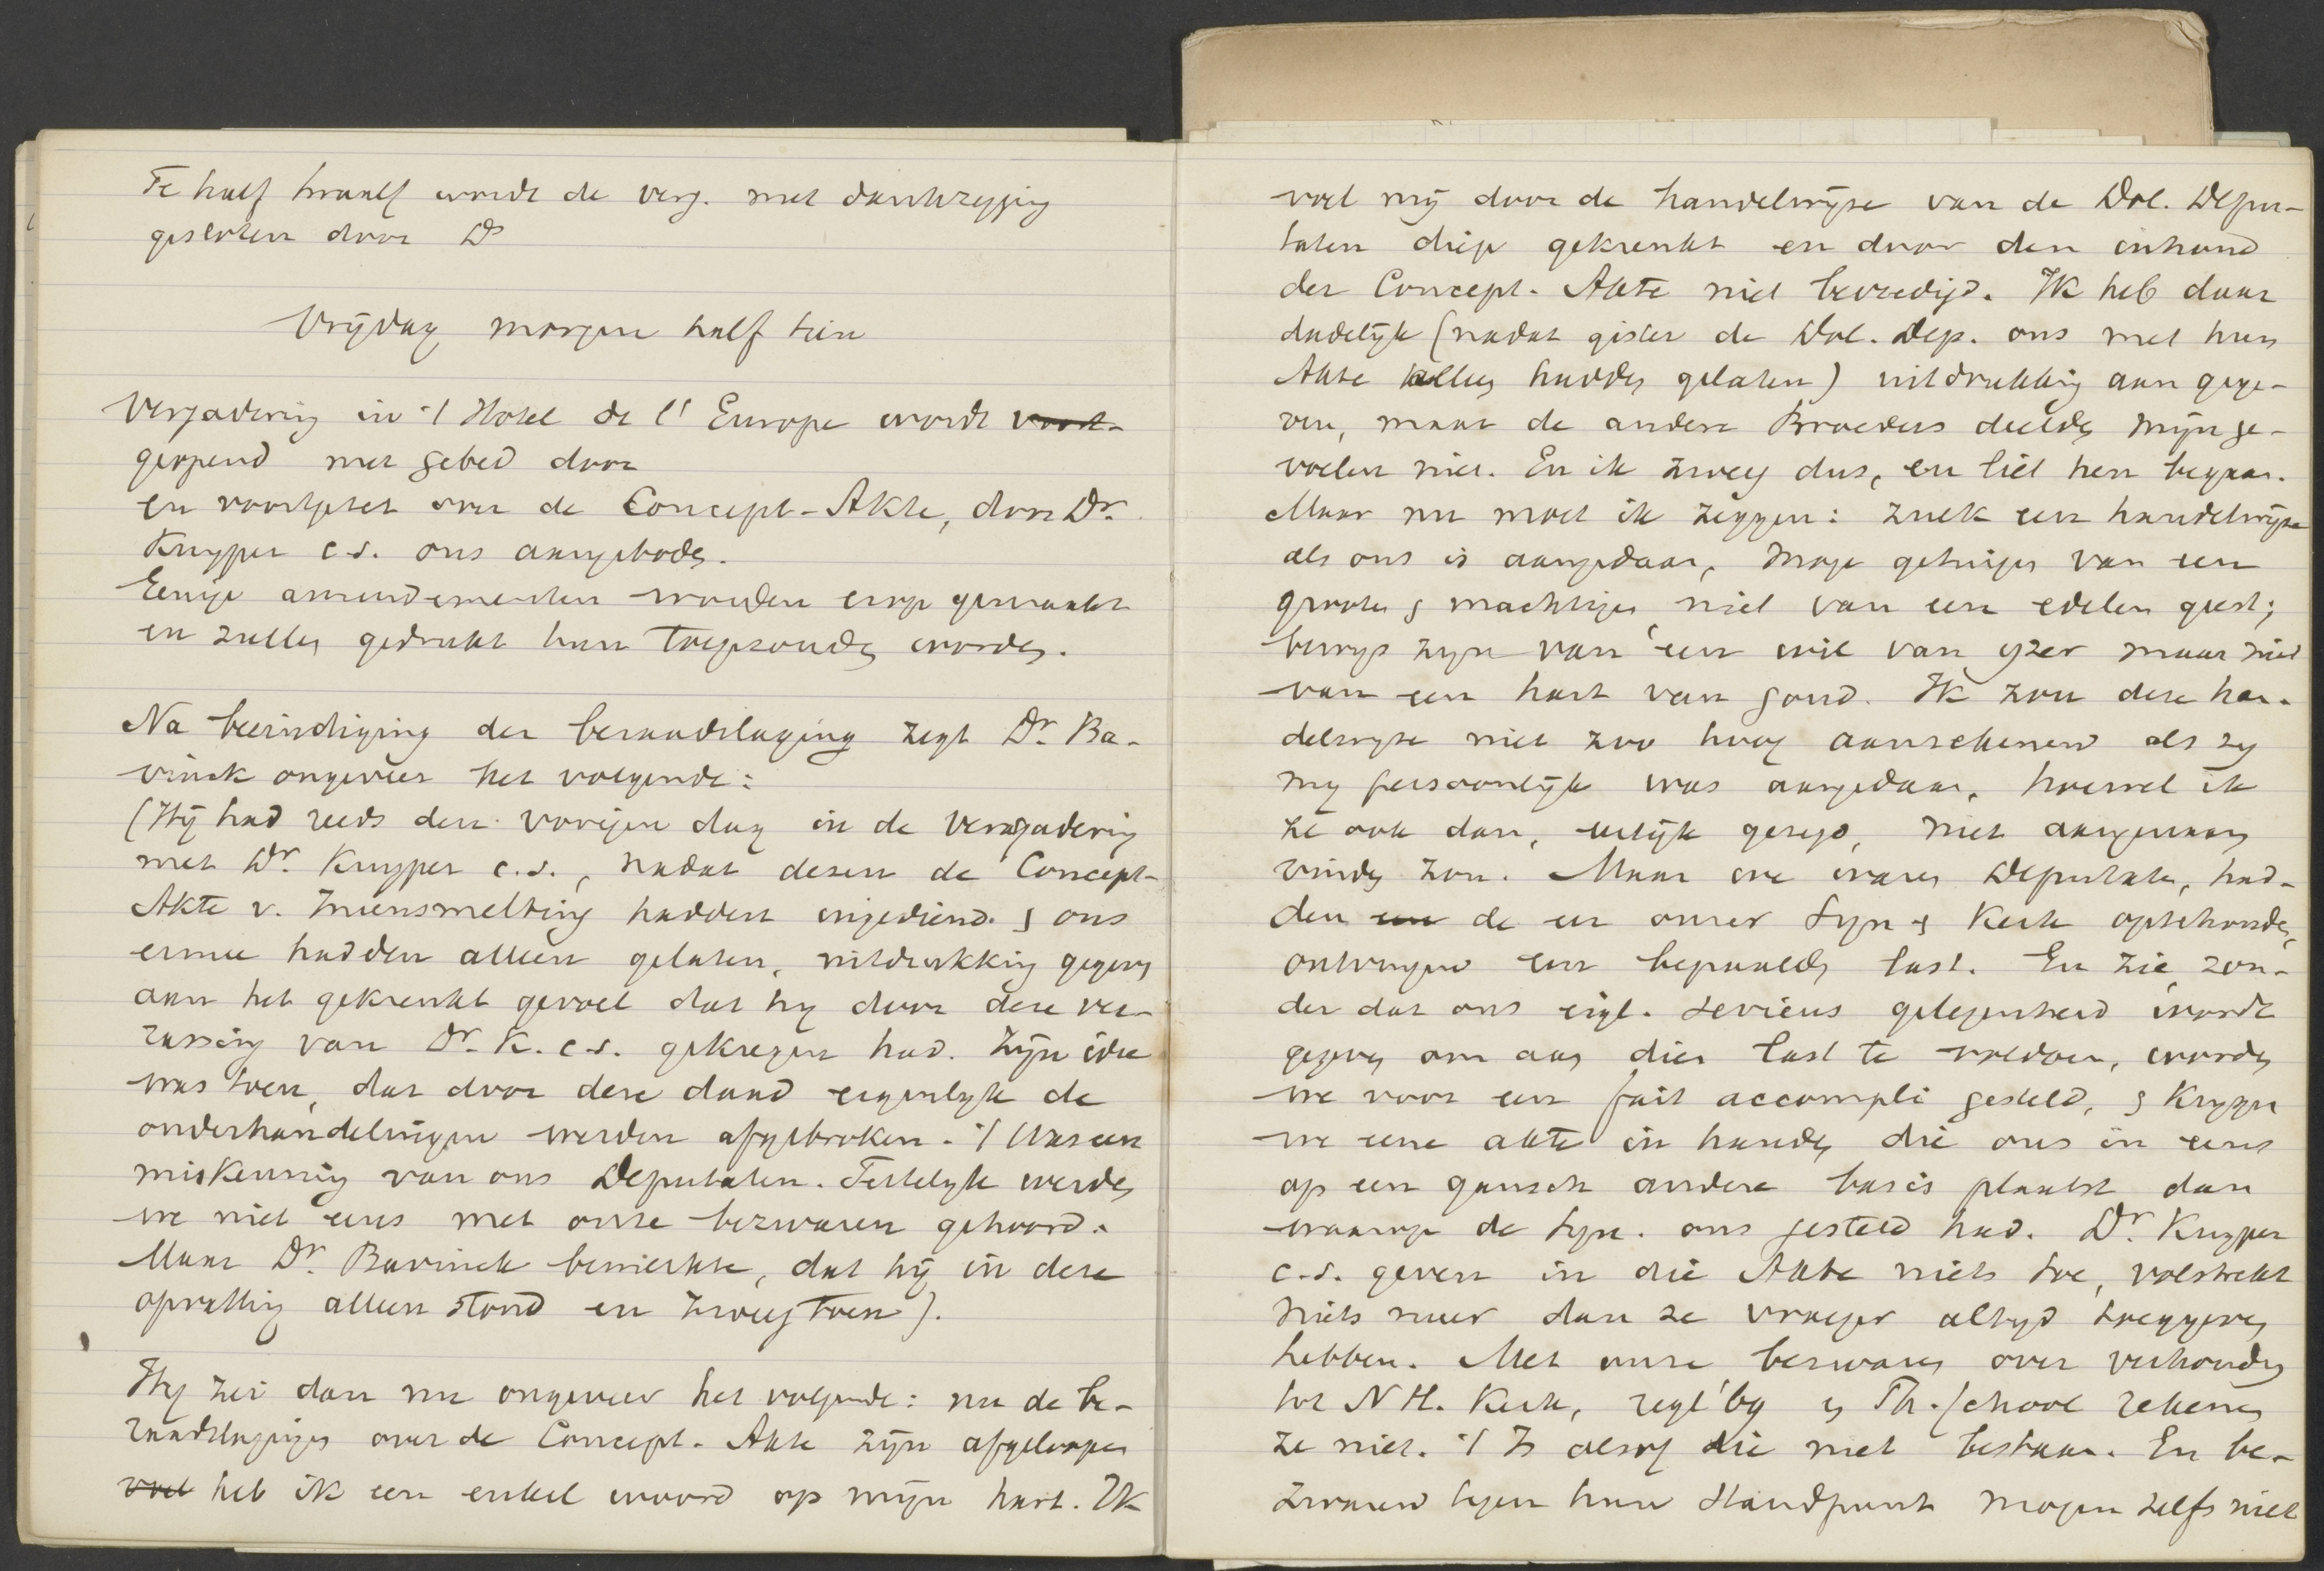 Te half twaalf wordt de verg. met dankzegging
gesloten door Ds
Vrijdag morgen half tien
Vergadering in 't Hotel de l'Europe wordt voort-
geopend met gebed door
en voortgezet over de Concept-Akte, door Dr.
Kuyper c.s. ons aangeboden.
Eenige amendementen worden erop gemaakt
en zullen gedrukt hun toegezonden worden.
Na beëindiging der beraadslaging zegt Dr. Ba-
vinck ongeveer het volgende:
(Hij had reeds den vorigen dag in de Vergadering
met Dr. Kuyper c.s., nadat dezen de Concept-
Akte v. Ineensmelting hadden ingediend & ons
ermee hadden alleen gelaten, uitdrukking gegeven
aan het gekrenkt gevoel dat hij door deze ver-
rassing van Dr. K. c.s. gekregen had. Zijn idee
was toen, dat door deze daad eigenlijk de
onderhandelingen werden afgebroken. 't Was een
miskenning van ons Deputaten. Feitelijk werden
we niet eens met onze bezwaren gehoord.
Maar Dr. Bavinck bemerkte, dat hij in deze
opvatting alleen stond en zweeg toen).
Hij zei dan nu ongeveer het volgende: nu de be-
raadslagingen over de Concept-Akte zijn afgeloopen
voel heb ik een enkel woord op mijn hart. Ik
voel mij door de handelwijze van de Dol. Depu-
taten diep gekrenkt en door den inhoud
der Concept-Akte niet bevredigd. Ik heb daar
dadelijk (nadat gister de Dol. Dep. ons met hun
Akte alleen hadden gelaten) uitdrukking aan gege-
ven, maar de andere Broeders deelden mijn ge-
voelen niet. En ik zweeg dus, en liet hen begaan.
Maar nu moet ik zeggen: zulk een handelwijze
als ons is aangedaan, moge getuigen van een
grooten & machtigen niet van een edelen geest;
bewijs zijn van een wil van yzer maar niet
van een hart van goud. Ik zou deze han-
delwyze niet zoo hoog aanrekenen als zy
my persoonlijk was aangedaan, hoewel ik
ze ook dan, eerlijk gezegd, niet aangenaam
vinden zou. Maar we waren Deputaten, had-
den een de eer onzer Syn & Kerk optehouden,
ontvingen een bepaalden last. En zie, zon-
der dat ons eigl. serieus gelegenheid wordt
gegeven om aan dien last te voldoen, worden
we voor een fait accompli gesteld, & krygen
we eene akte in handen die ons in eens
op een gansch andere basis plaatst dan
waarop de Syn. ons gesteld had. Dr. Kuyper
c.s. geven in die Akte niets toe, volstrekt
niets meer dan ze vroeger altyd toegegeven
hebben. Met onze bezwaren over verhouding
tot N H. Kerk, regl' by & Th. School rekenen
ze niet. 't Is alsof die niet bestaan. En be-
zwaren tegen hun standpunt mogen zelfs niet